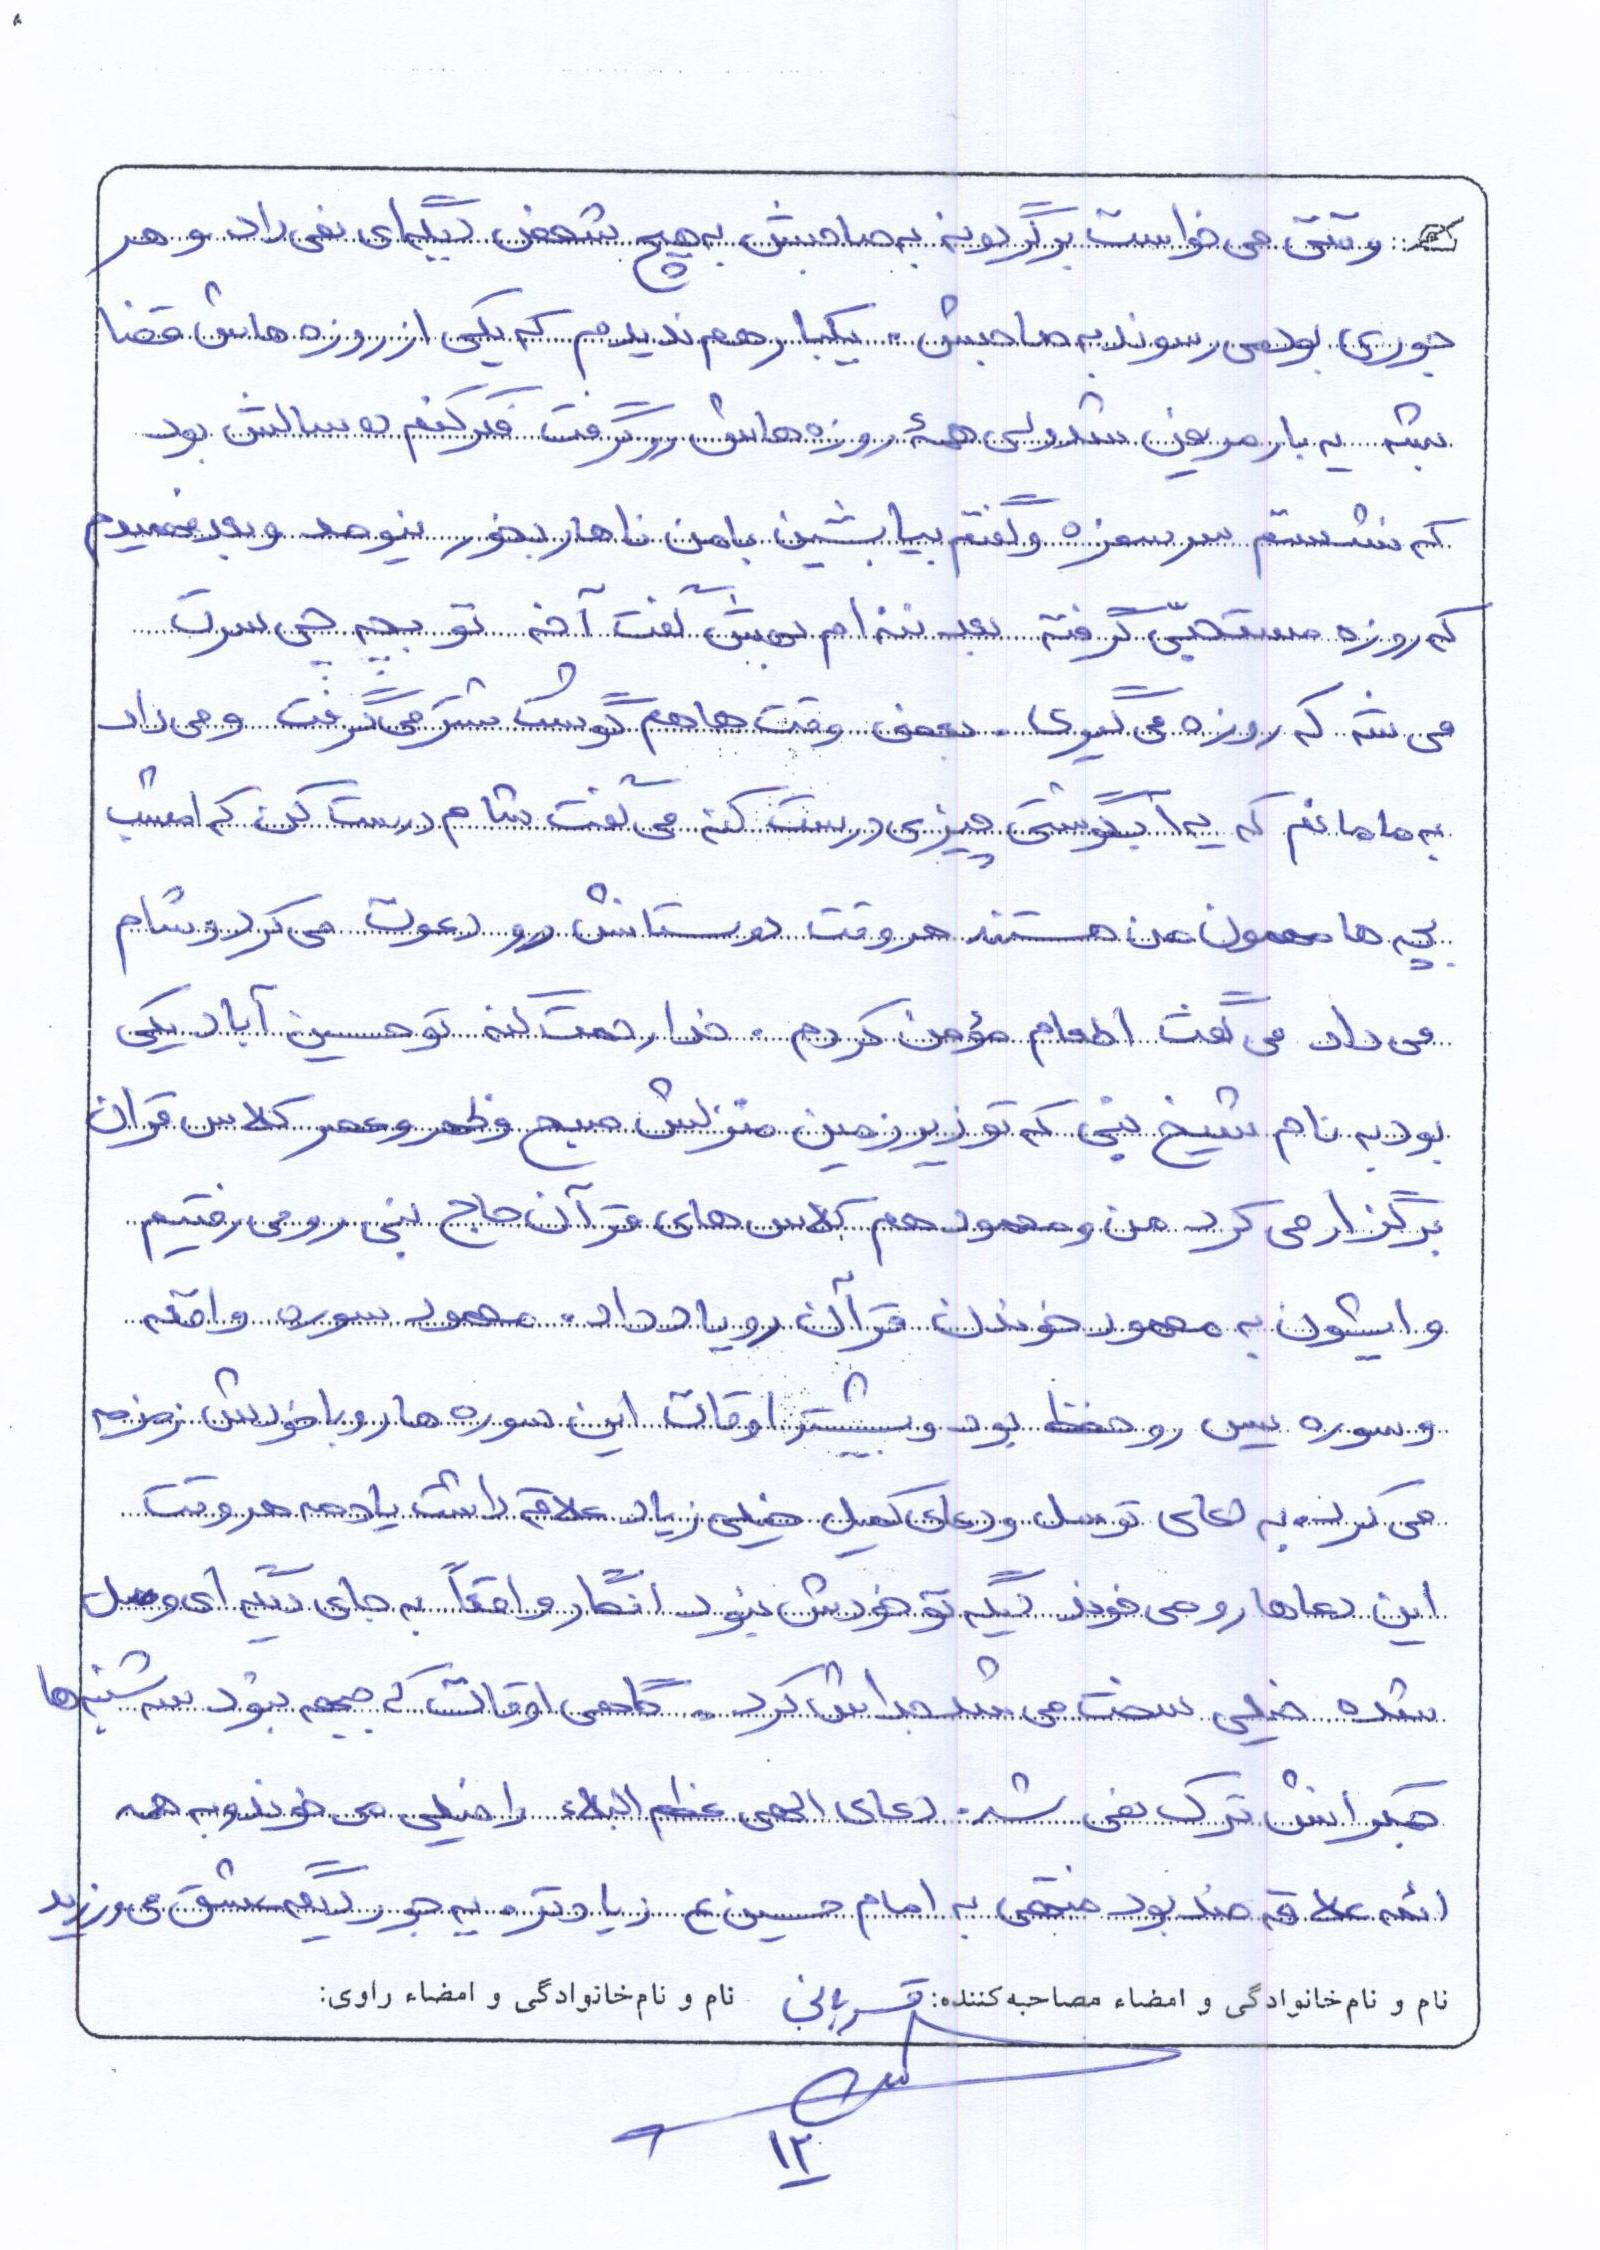 وقتی می خواست برگردونه به صاحبش به هیچ شخص دیگه ای نمی داد و هر
جوری بود می رسوند به صاحبش. یکبار هم ندیدم که یکی از روزه هاش قضا
بشه یه بار مریض شد ولی همهٔ روزه هاش رو گرفت فکر کنم ده سالش بود
که نشستم سر سفره و گفتم بیا بشین با من ناهار بخور نیومد و بعد فهمیدم
که روزه مستحبّی گرفته بعد ننه ام بهش گفت آخه تو بچه چی سرت
می شه که روزه می گیری. بعضی وقت ها هم گوشت شتر می گرفت و می داد
به مامانم که یه آبگوشتی چیزی درست کنه می گفت شام درست کن که امشب
بچه ها مهمون من هستند هر وقت دوستاش رو دعوت می کرد و شام
می داد می گفت اطعام مؤمن کردم. خدا رحمت کنه تو حسین آباد یکی
بود به نام شیخ نبی که تو زیرزمین منزلش صبح و ظهر و عصر کلاس قران
برگزار می کرد من و محمود هم کلاس های قرآن حاج نبی رو می رفتیم
و ایشون به محمود خوندن قرآن رو یاد داد. محمود سوره واقعه
و سوره یس رو حفظ بود و بیشتر اوقات این سوره ها رو با خودش زمزمه
می کرد. به دعای توسل و دعای کمیل خیلی زیاد علاقه داشت یادمه هر وقت
این دعاها رو می خوند دیگه تو خودش نبود انگار واقعاً به جای دیگه ای وصل
شده خیلی سخت می شد جداش کرد. گاهی اوقات که جبهه نبود سه شنبه ها
جمکرانش ترک نمی شد. دعای الهی عظم البلاء را خیلی می خوند و به همه
ائمه علاقه مند بود منتهی به امام حسین ع زیادتر و یه جور دیگه عشق می ورزید
نام و نام خانوادگی و امضاء مصاحبه کننده: قربانی نام و نام خانوادگی و امضاء راوی:
۱۲